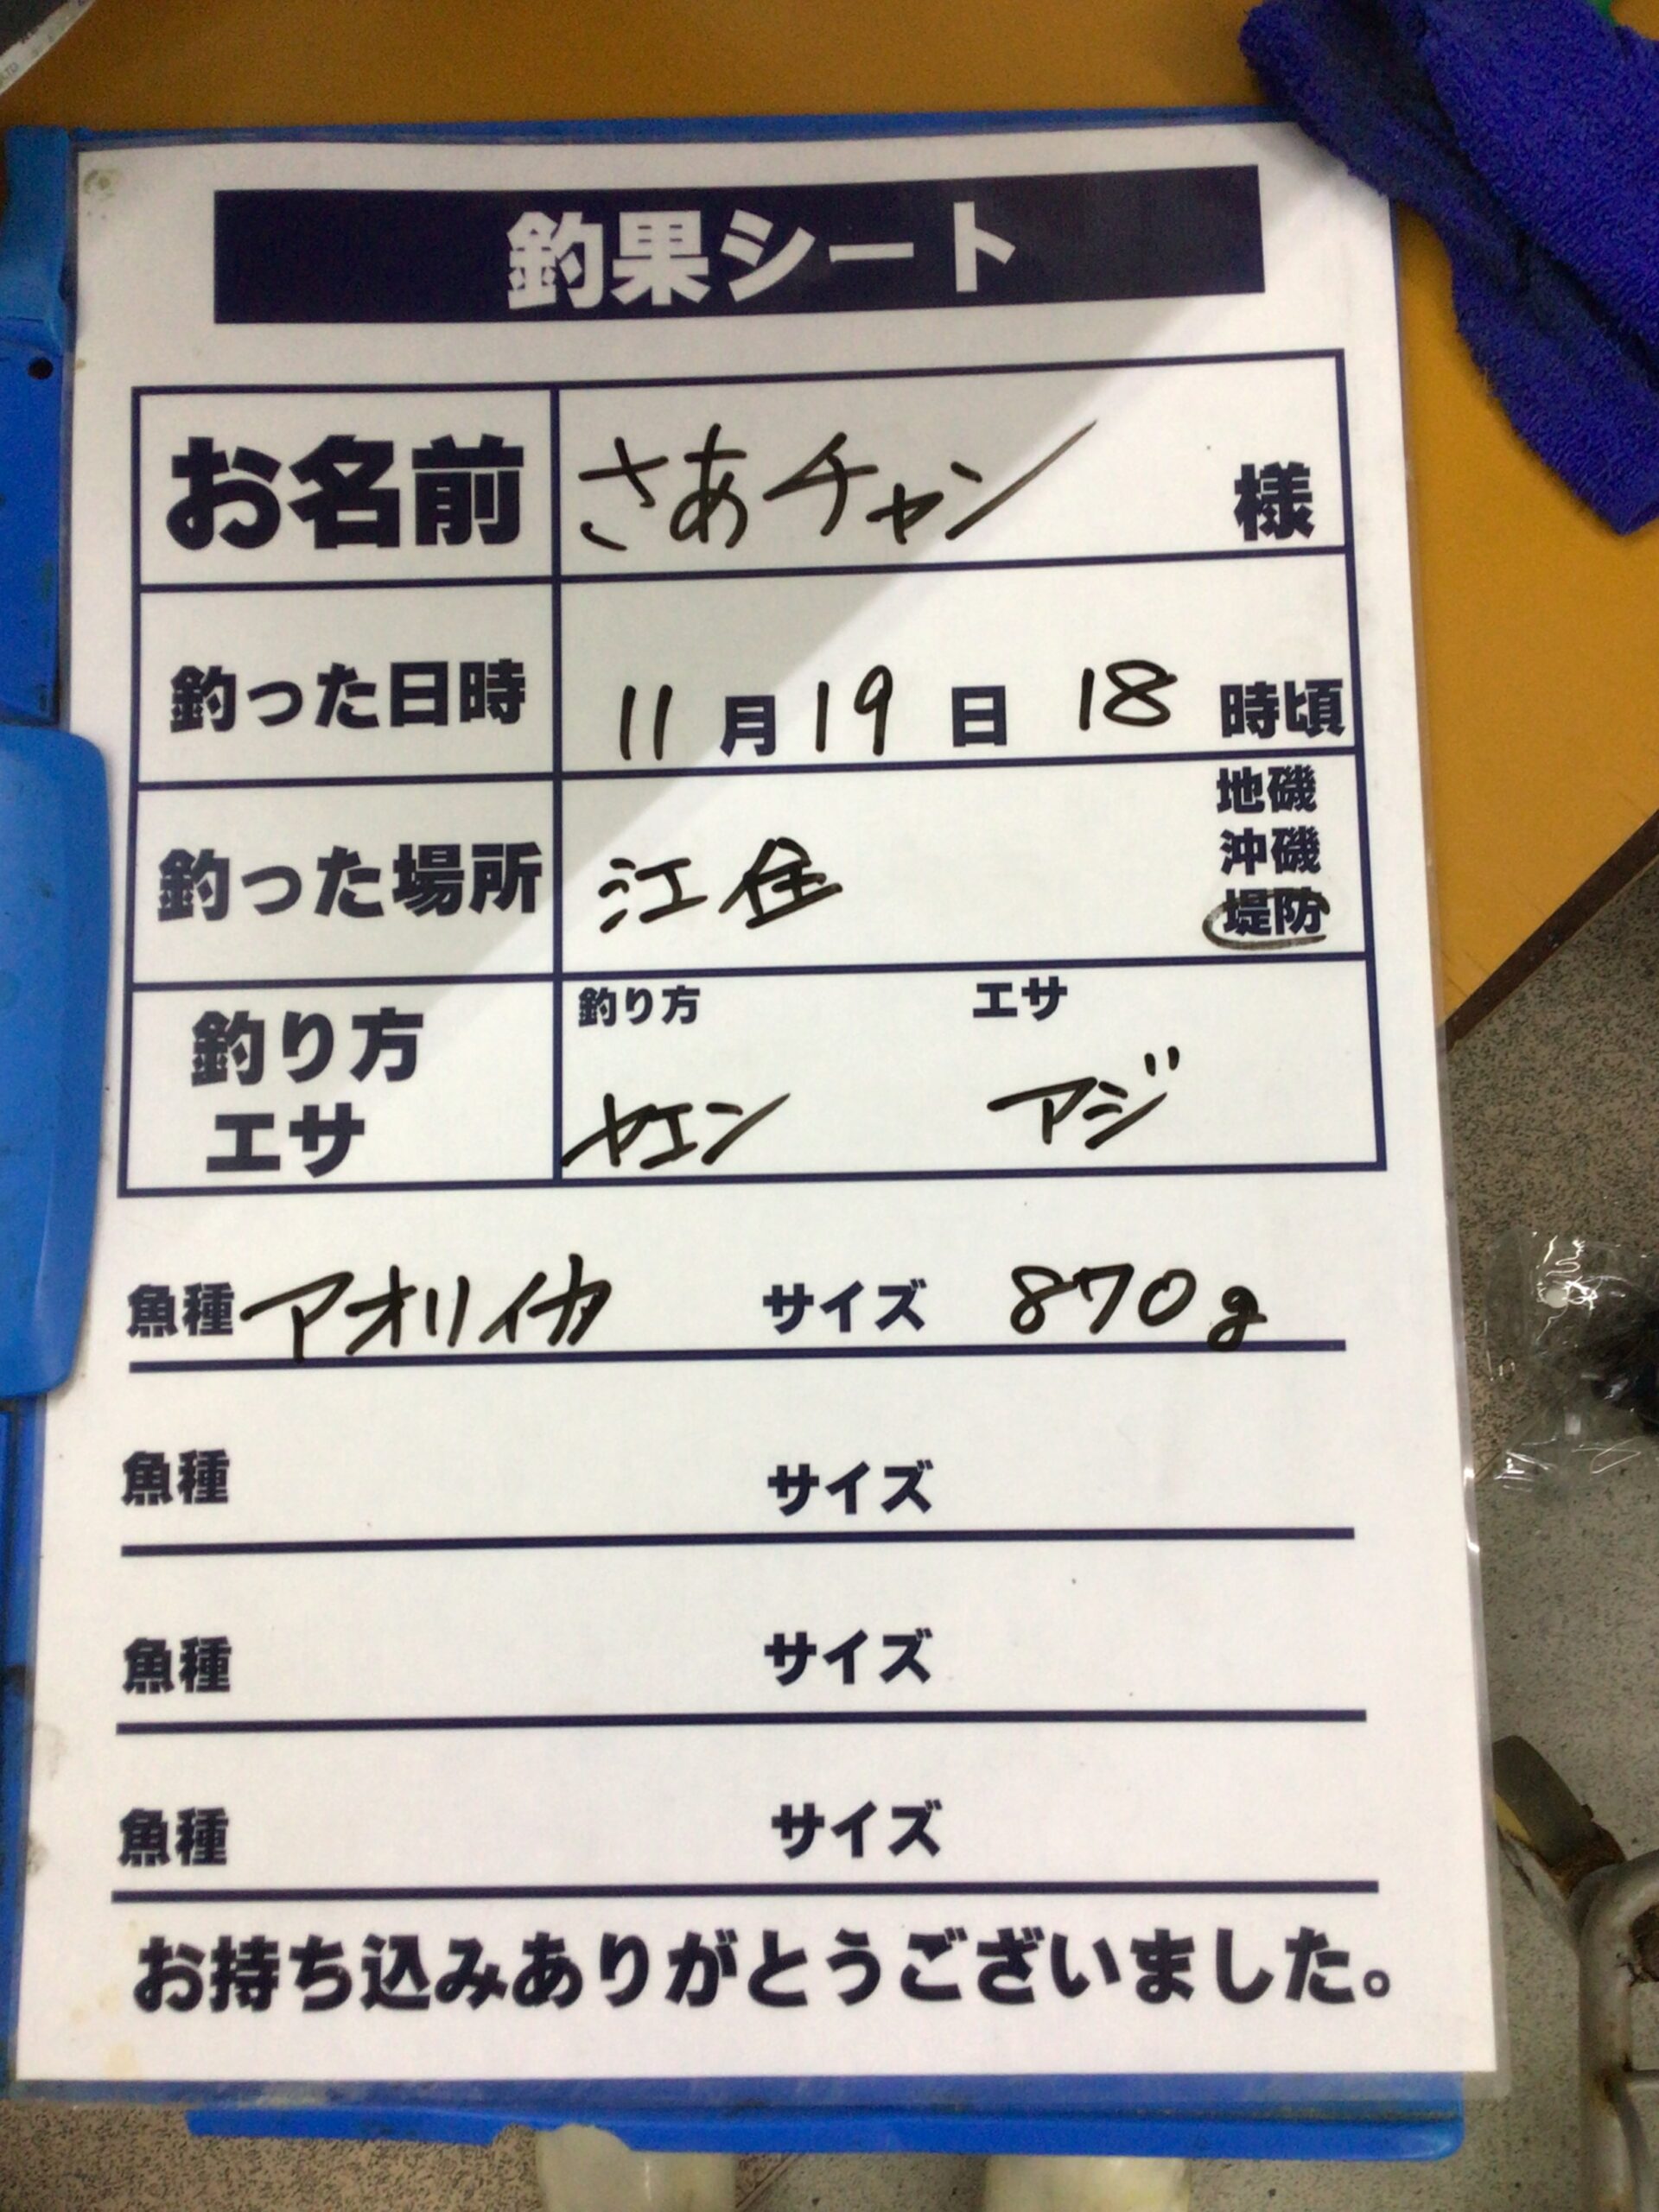 釣果シート
お名前 さあチャン 様
釣った日時 11月19日 18時頃
釣った場所 江住 地磯
沖磯
堤防
釣り方 エサ
釣り方 ヤエン エサ アジ
魚種 アオリイカ サイズ 870g
魚種 サイズ
魚種 サイズ
魚種 サイズ
お持ち込みありがとうございました。